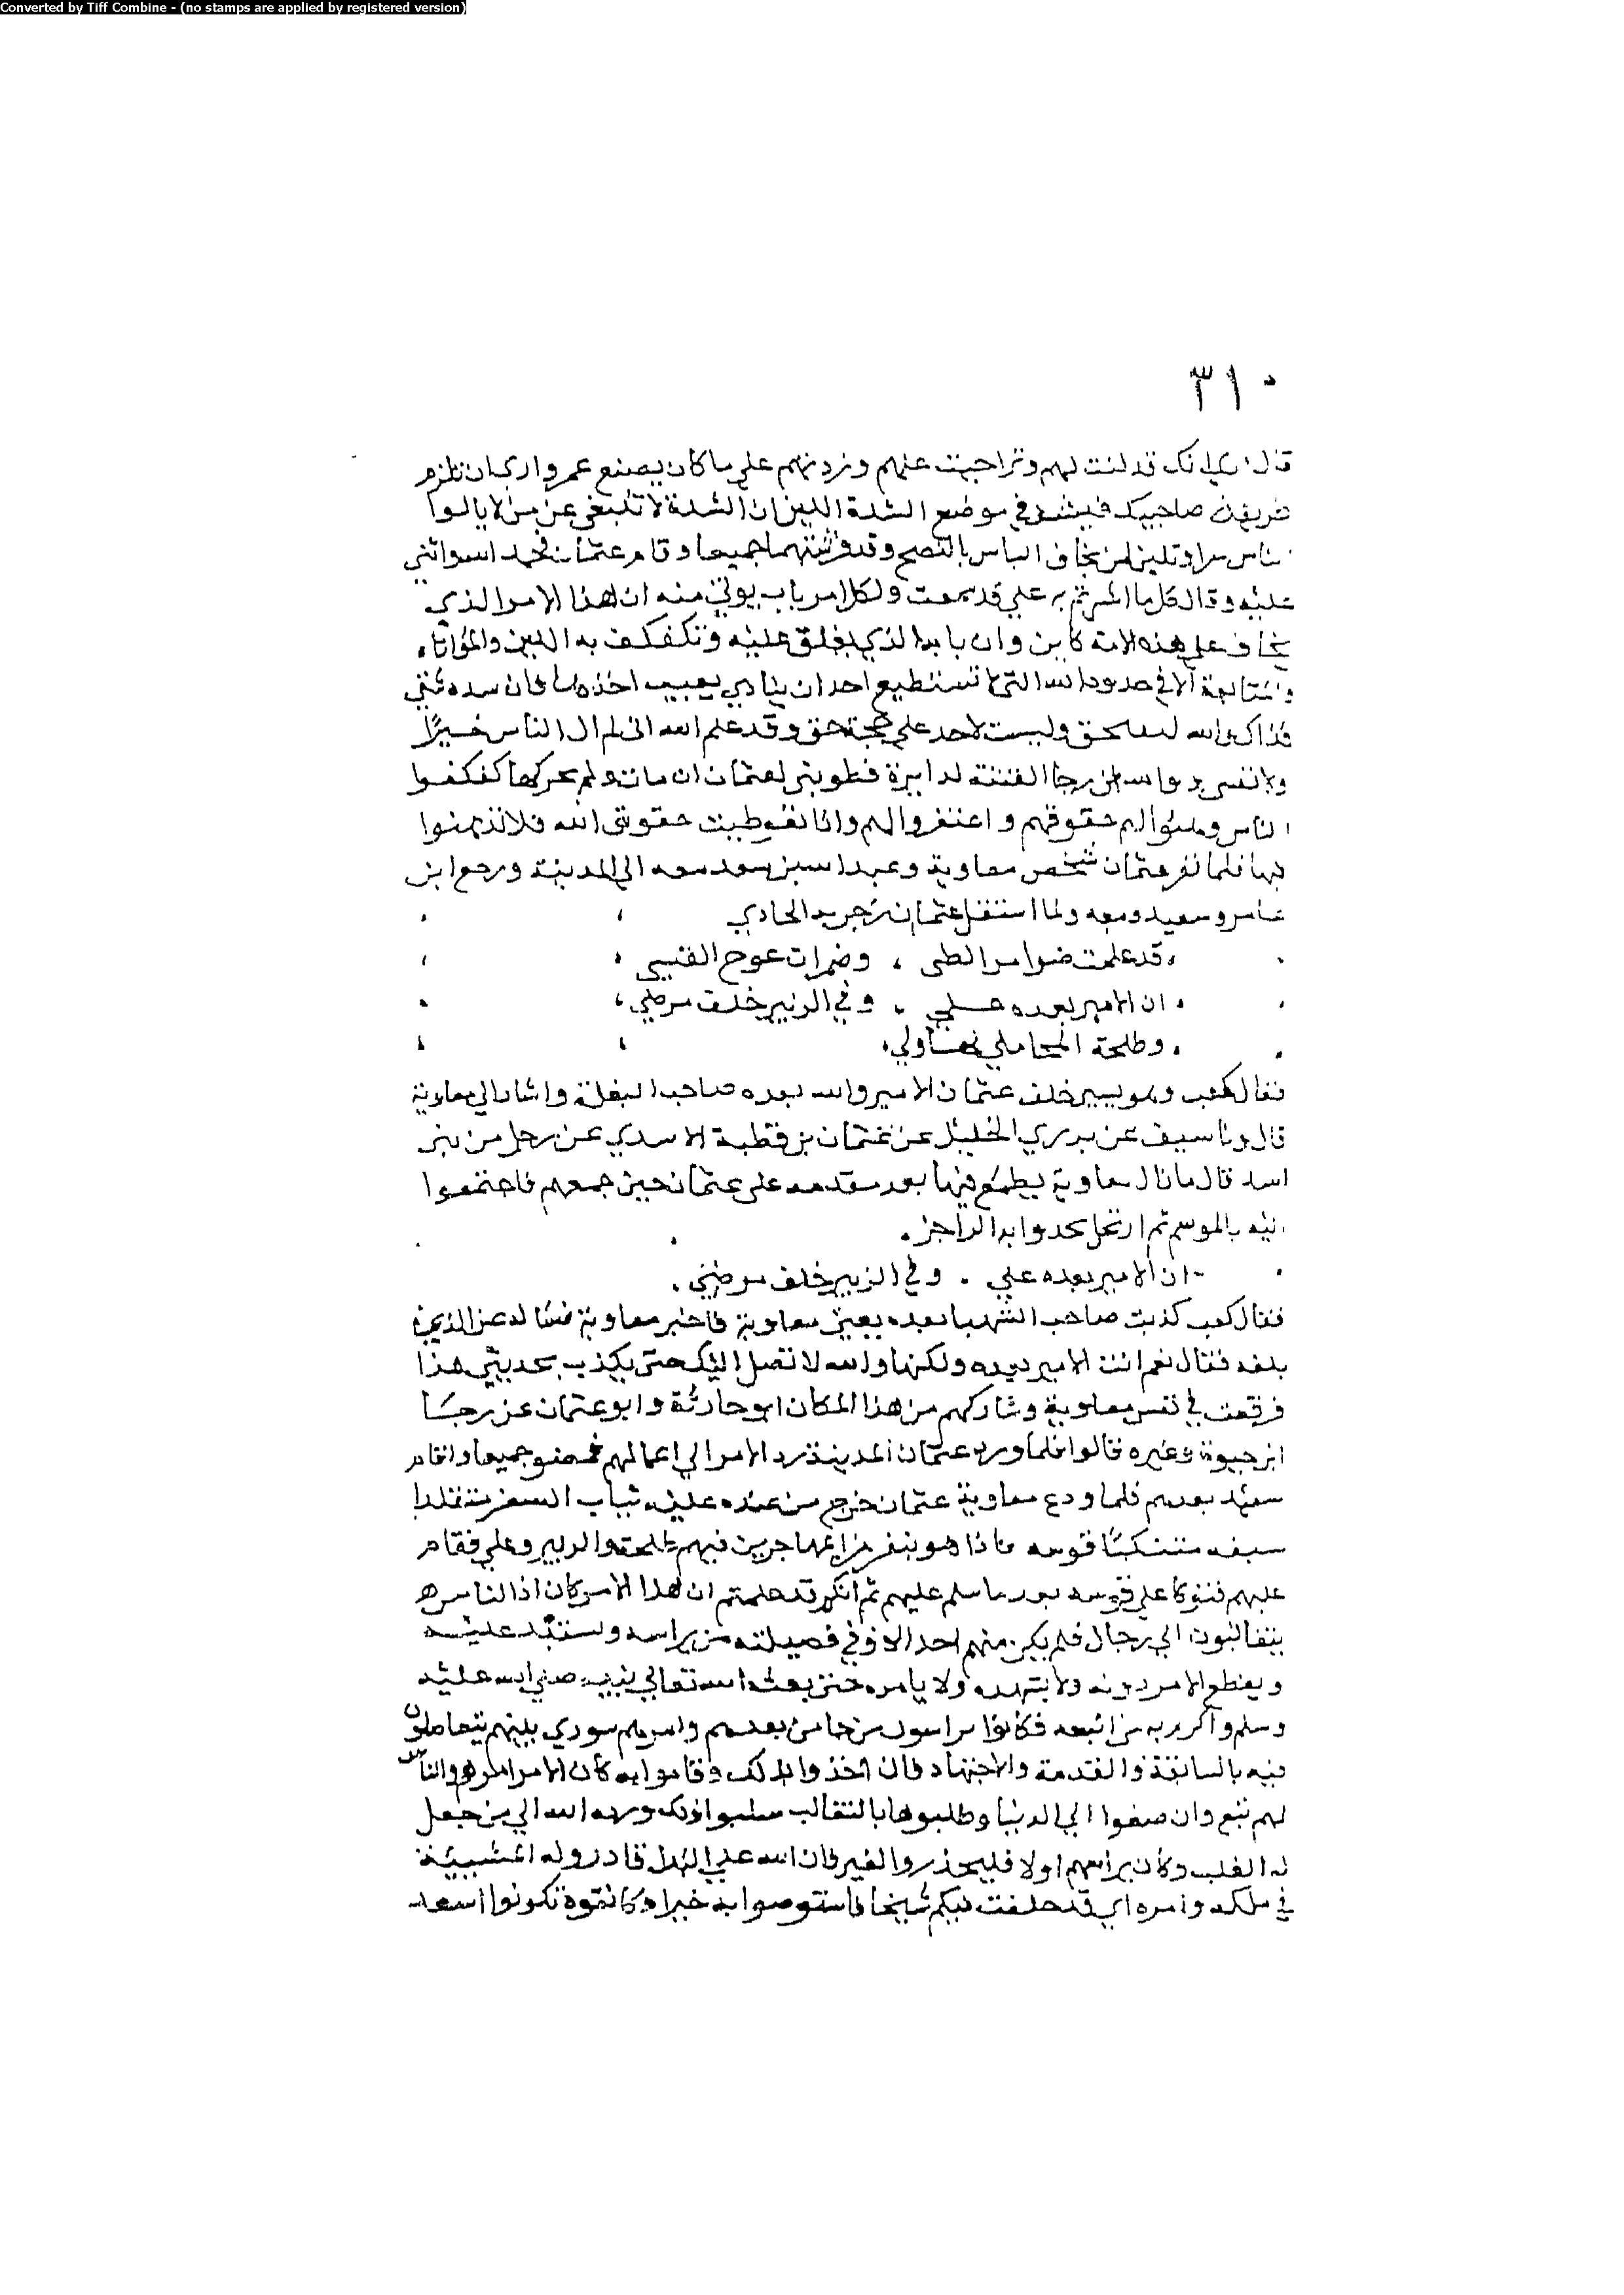 Converted by Tiff Combine - (no stamps are applied by registered version)
٣١٠
قال انك قد لنت لهم وتراخيت عنهم وزدتهم على ما كان يصنع عمر وارى ان تلزم
طريقة صاحبيك فتشد في موضع الشدة اللين ان الشدة لا تنبغي عن من لا يالوا
الناس سرا وتلين لمن يخاف الناس بالنصح وقد فرشتهما جميعا وقام عثمان فحمد الله واثنى
عليه وقال كل ما اشرتم به علي قد سمعت ولكل امر باب يوتى منه ان هذا الامر الذي
يخاف على هذه الامة كاين وان بابه الذي يغلق عليه وتكفكف به اللين والمؤاتاه
والمتابعة الا في حدود الله التي لا تستطيع احد ان ينادي بعيب احدها فان سده شي
فذاك والله ليفتحن وليست لاحد علي حجة حق وقد علم الله اني لم ال الناس خيرا
ولا نفسي ووالله ان رحا الفتنة لدايرة فطوبى لعثمان ان مات ولم يحركها كفكفوا
الناس وهبوا لهم حقوقهم واغتفروا لهم واذا تعوطيت حقوق الله فلا تدهنوا
فيها فلما نفر عثمان شخص معاوية وعبد الله بن سعد معه الى المدينة ورجع ابن
عامر وسعيد ومعه ولما استقل عثمان رجز به الحادي
قد علمت ضوامر المطى ، وضمرات عوج القسي
ان الامير بعده علي ، وفي الزبير خلف مرضي
وطلحة الحامي لها ولي
فقال كعب وهو يسير خلف عثمان الامير والله بعده صاحب البغلة واشار الي معاوية
قال ونا سيف عن بدر بن الخليل عن عثمان بن قطبة الاسدي عن رجل من بني
اسد قال ما زال معاوية يطمع فيها بعد مقدمه على عثمان حين جمعهم فاجتمعوا
اليه بالموسم ثم ارتحل يحدوا به الراجز
ان الامير بعده علي . وفي الزبير خلف مرضي .
فقال كعب كذبت صاحب الشهبا بعده يعني معاوية فاخبر معاوية فساله عن الذي
بلغه فقال نعم انت الامير بعده ولكنها والله لا تصل اليك حتى يكذب بحديثي هذا
فوقعت في نفس معاوية وشاركهم من هذا المكان ابو حارثة وابو عثمان عن رجا
ابن حيوة وغيره قالوا فلما ورد عثمان المدينة رد الامرا الي اعمالهم فمضوا جميعا واقام
سعيد بعدهم فلما ودع معاوية عثمان خرج من عنده عليه ثياب السفر متقلدا
سيفه متنكبا قوسه فاذا هو بنفر من المهاجرين فيهم طلحة والزبير وعلي فقام
عليهم فتوكا على قوسه بعد ما سلم عليهم ثم انكم قد علمتم ان هذا الامر كان اذ الناس
يتغالبون الي رجال فلم يكن منهم احد الا وفي فصيلته من يراسه ويستبد عليه
ويقطع الامر دونه ولا يشهده ولا يامره حتى بعث الله تعالي نبيه صلى الله عليه
وسلم واكرم به من اتبعه فكانوا يراسون من جا من بعدهم وامرهم شورى بينهم يتفاضلون
فيه بالسابقة والقدمة والاجتهاد فان اخذوا بذلك وقاموا به كان الامر امرهم والناس
لهم تبع وان صغوا الي الدنيا وطلبوها بالتغالب سلبوا ذلك ورده الله الي من جعل
له الغلب وكان يراسهم اولا فليحذروا الغير فان الله علي البدل قادر وله المشيئة
في ملكه وامره اني قد خلفت فيكم شيخا فاستوصوا به خيرا وكانفوه تكونوا اسعد